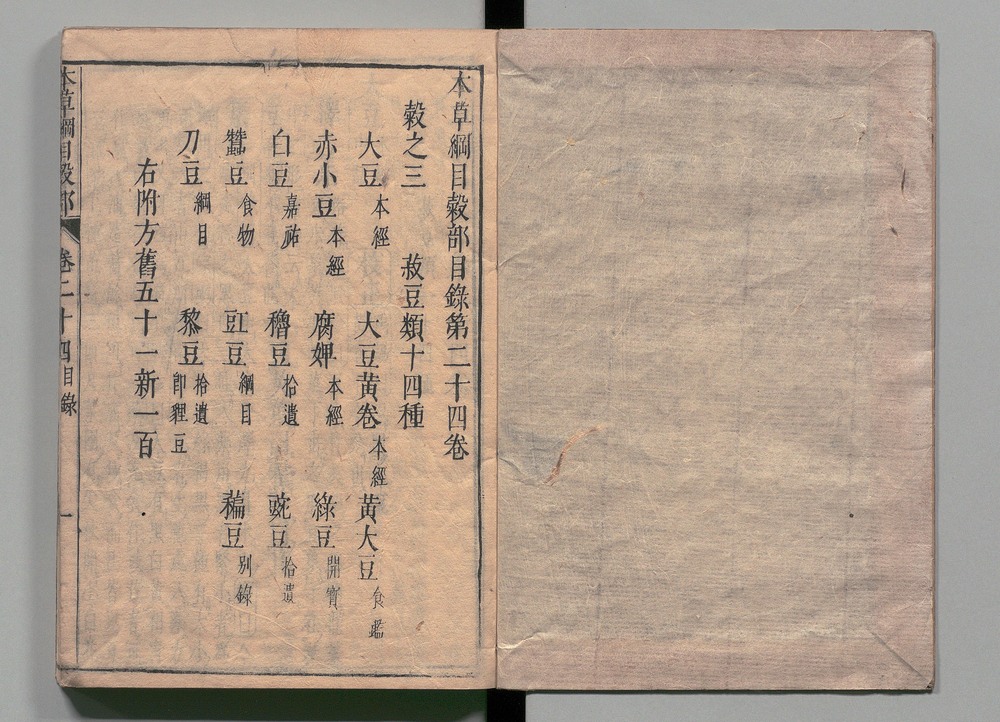 本草綱目穀部目錄第二十四卷
穀之三　菽豆類十四種
大豆 本經　大豆黃卷 本經　黃大豆 食鑑
赤小豆 本經　腐婢 本經　綠豆 開寶
白豆 嘉祐　穭豆 拾遺　豌豆 拾遺
蠶豆 食物　豇豆 綱目　藊豆 別錄
刀豆 綱目　黎豆 拾遺 即貍豆
右附方舊五十一新一百
本草綱目穀部　卷二十四目錄　一